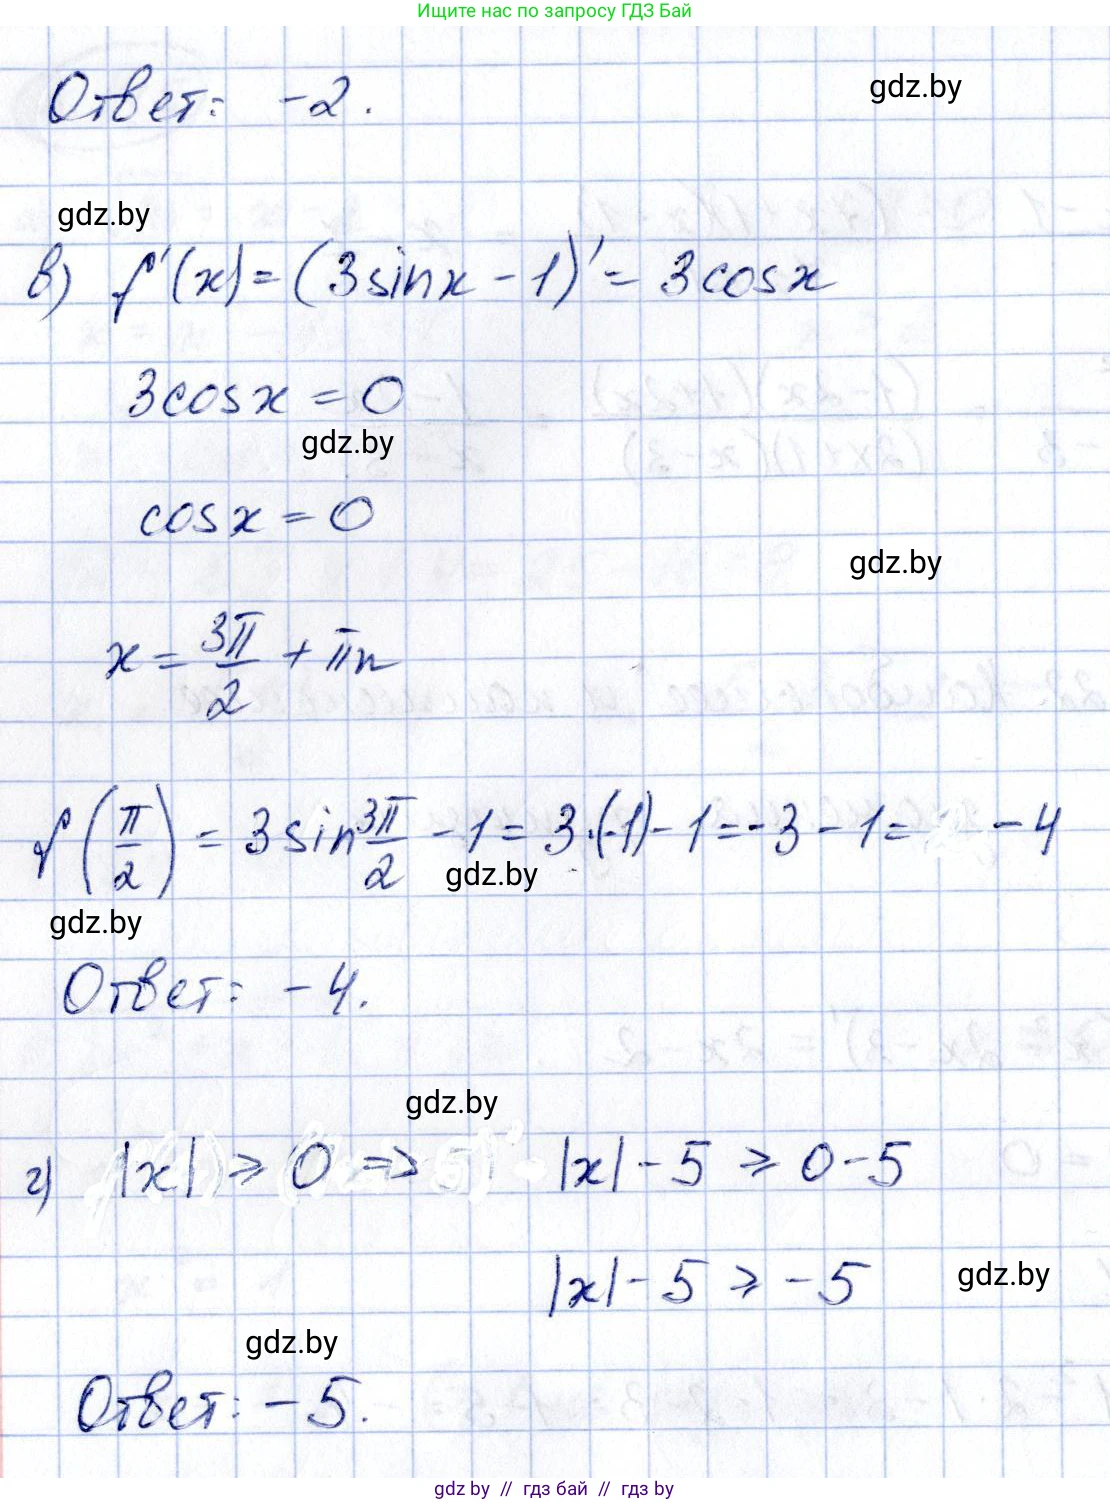 Ищите нас по запросу ГДЗ Бай
Ответ: -2.
gdz.by
gdz.by
в) f'(x) = (3sinx - 1)' = 3cosx
3cosx = 0
gdz.by
cosx = 0
gdz.by
x = 3π/2 + πn
f(π/2) = 3sin 3π/2 - 1 = 3·(-1) - 1 = -3 - 1 = -4
gdz.by
gdz.by
Ответ: -4.
gdz.by
г) |x| ⩾ 0 => |x| - 5 ⩾ 0 - 5
|x| - 5 ⩾ -5
gdz.by
gdz.by
Ответ: -5.
gdz by // гдз бай // гдз by